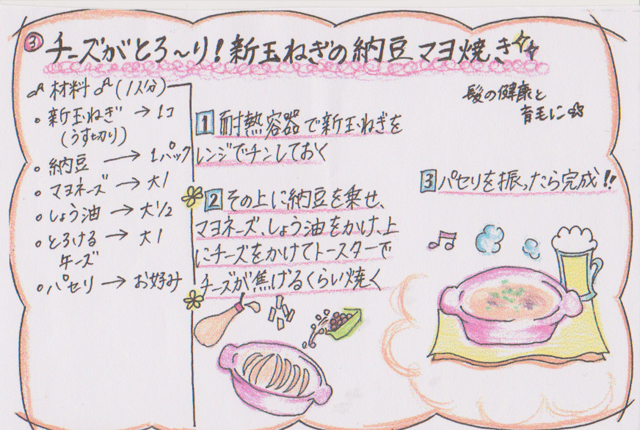 ③ チーズがとろ〜り!新玉ねぎの納豆マヨ焼き
材料(1人分)
・新玉ねぎ→1コ
(うす切り)
・納豆→1パック
・マヨネーズ→大1
・しょう油→大1/2
・とろける→大1
チーズ
・パセリ→お好み
1 耐熱容器で新玉ねぎを
レンジでチンしておく
2 その上に納豆を乗せ、
マヨネーズ、しょう油をかけ、上
にチーズをかけてトースターで
チーズが焦げるくらい焼く
髪の健康と
育毛に
3 パセリを振ったら完成!!